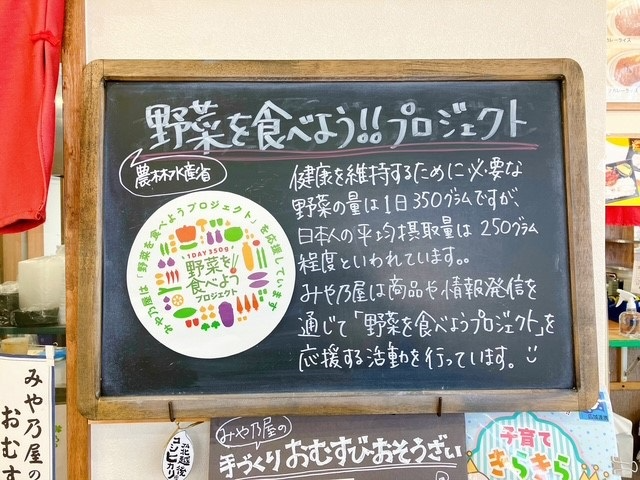 野菜を食べよう!!プロジェクト
農林水産省
健康を維持するために必要な
野菜の量は1日350グラムですが、
日本人の平均摂取量は250グラム
程度といわれています。。
みや乃屋は商品や情報発信を
通じて「野菜を食べようプロジェクト」を
応援する活動を行っています。
みや乃屋は「野菜を食べようプロジェクト」を応援しています
1DAY350g
野菜を!!
食べよう
プロジェクト
みや乃屋の
おむす
北越後
コシヒカリ
みや乃屋の
手づくりおむすび・おそうざい
子育て
きらきら